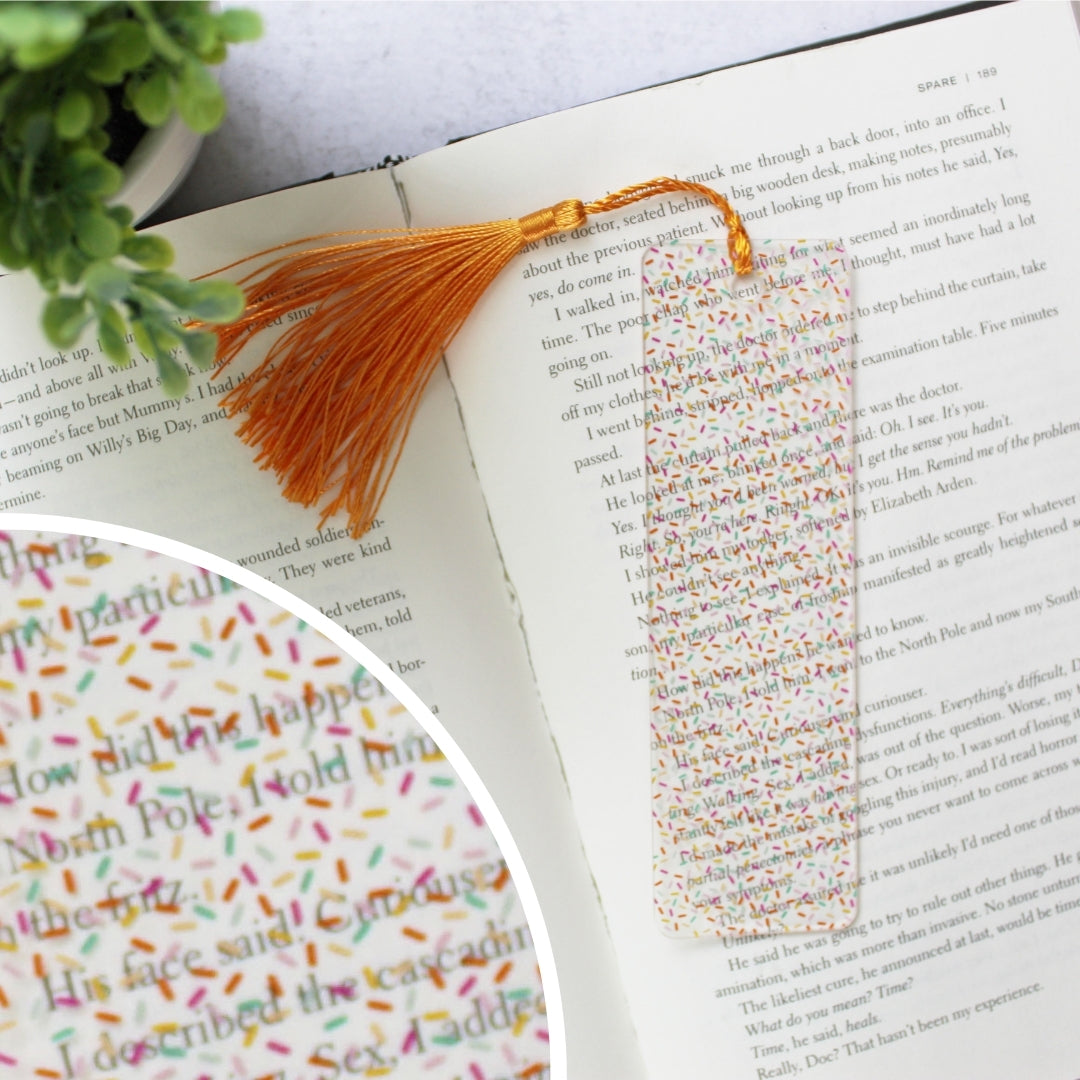 SPARE | 189
didn't look up. I
—and above all with
wasn't going to break that
anyone's face but Mummy's. I had
beaming on Willy's Big Day, and
ermine.
wounded soldier, en-
They were kind
led veterans,
hem, told
bor-
a
snuck me through a back door, into an office. I
saw the doctor, seated behind big wooden desk, making notes, presumably
about the previous patient. Without looking up from his notes he said, Yes,
yes, do come in.
I walked in, watched him waiting for who seemed an inordinately long
time. The poor chap who went before me, I thought, must have had a lot
going on.
Still not looking up, the doctor ordered me to step behind the curtain, take
off my clothes, he'd be with me in a moment.
I went behind, stripped, hopped onto the examination table. Five minutes
passed.
At last the curtain pulled back and there was the doctor.
He looked at me, blinked once, and said: Oh. I see. It's you.
Yes. I thought you'd been warned, but I get the sense you hadn't.
Right. So, you're here. Righto. OK, it's you. Hm. Remind me of the problem
I showed him my todger, softened by Elizabeth Arden.
He couldn't see anything.
Nothing to see, I explained. It was an invisible scourge. For whatever
son, my particular case of frostnip manifested as greatly heightened
tion
How did this happen? he wanted to know.
North Pole, I told him. I went to the North Pole and now my South
on the fritz.
His face said: Curiouser and curiouser.
I described the cascading dysfunctions. Everything's difficult,
ing. Walking. Sex, I added, was out of the question. Worse, my
stantly felt like it was having sex. Or ready to. I was sort of losing
I'd made the mistake of googling this injury, and I'd read horror
partial penectomy, a phrase you never want to come across
our symptoms.
The doctor assured me it was unlikely I'd need one of those
Unlikely?
He said he was going to try to rule out other things. He
amination, which was more than invasive. No stone untur
The likeliest cure, he announced at last, would be time
What do you mean? Time?
Time, he said, heals.
Really, Doc? That hasn't been my experience.
thing
my particul
How did this happen
North Pole, I told him
the fritz.
His face said: Curiouser
I described the cascadin
Sex, I added